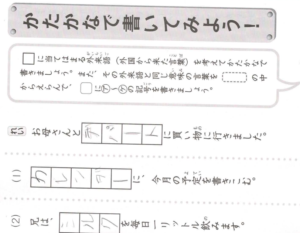 かたかなで書いてみよう！
□に当てはまる外来語（外国から来た言葉）を考えてかたかなで
書きましょう。また、その外来語と同じ意味の言葉を の中
からえらんで、□に の記号を書きましょう。
れい お母さんと デパート に買い物に行きました。
(1) カレンダー に、今月の予定を書きこむ。
(2) 兄は、ミルク を毎日一リットル飲みます。